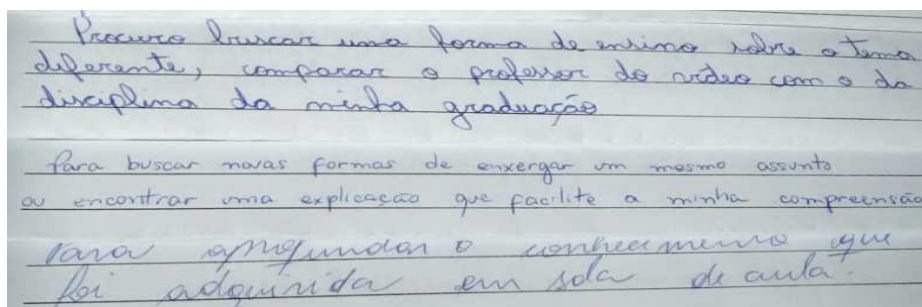 Procuro buscar uma forma de ensino sobre o tema
diferente, comparar o professor do vídeo com o da
disciplina da minha graduação
Para buscar novas formas de enxergar um mesmo assunto
ou encontrar uma explicação que facilite a minha compreensão
Para aprofundar o conhecimento que
foi adquirida em sala de aula.